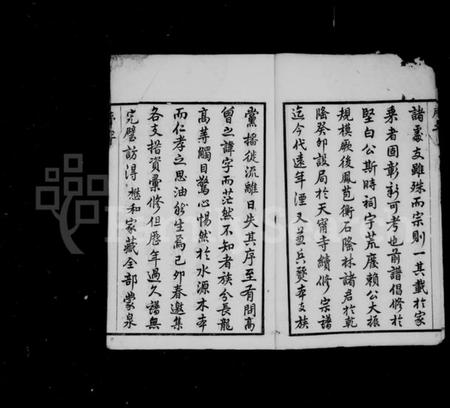 諸靄支雖殊而宗則一其載於家
乘者固彰彰可考也前譜倡修於
堅白公斯時祠宇荒廢賴公大振
規模厥後鳳苞衡石陰林諸君於乾
隆癸卯設局於天甯寺續修宗譜
迄今代遠年湮又益兵燹本支族
黨播徙流離日失其序至有問高
曾之諱字而茫然不知者族分長龍
高蓴觸目驚心惕然於水源木本
而仁孝之思油然生焉己卯春邀集
各支措資彙修但歷年過久譜無
完璧訪得懋和家藏全部蒙泉